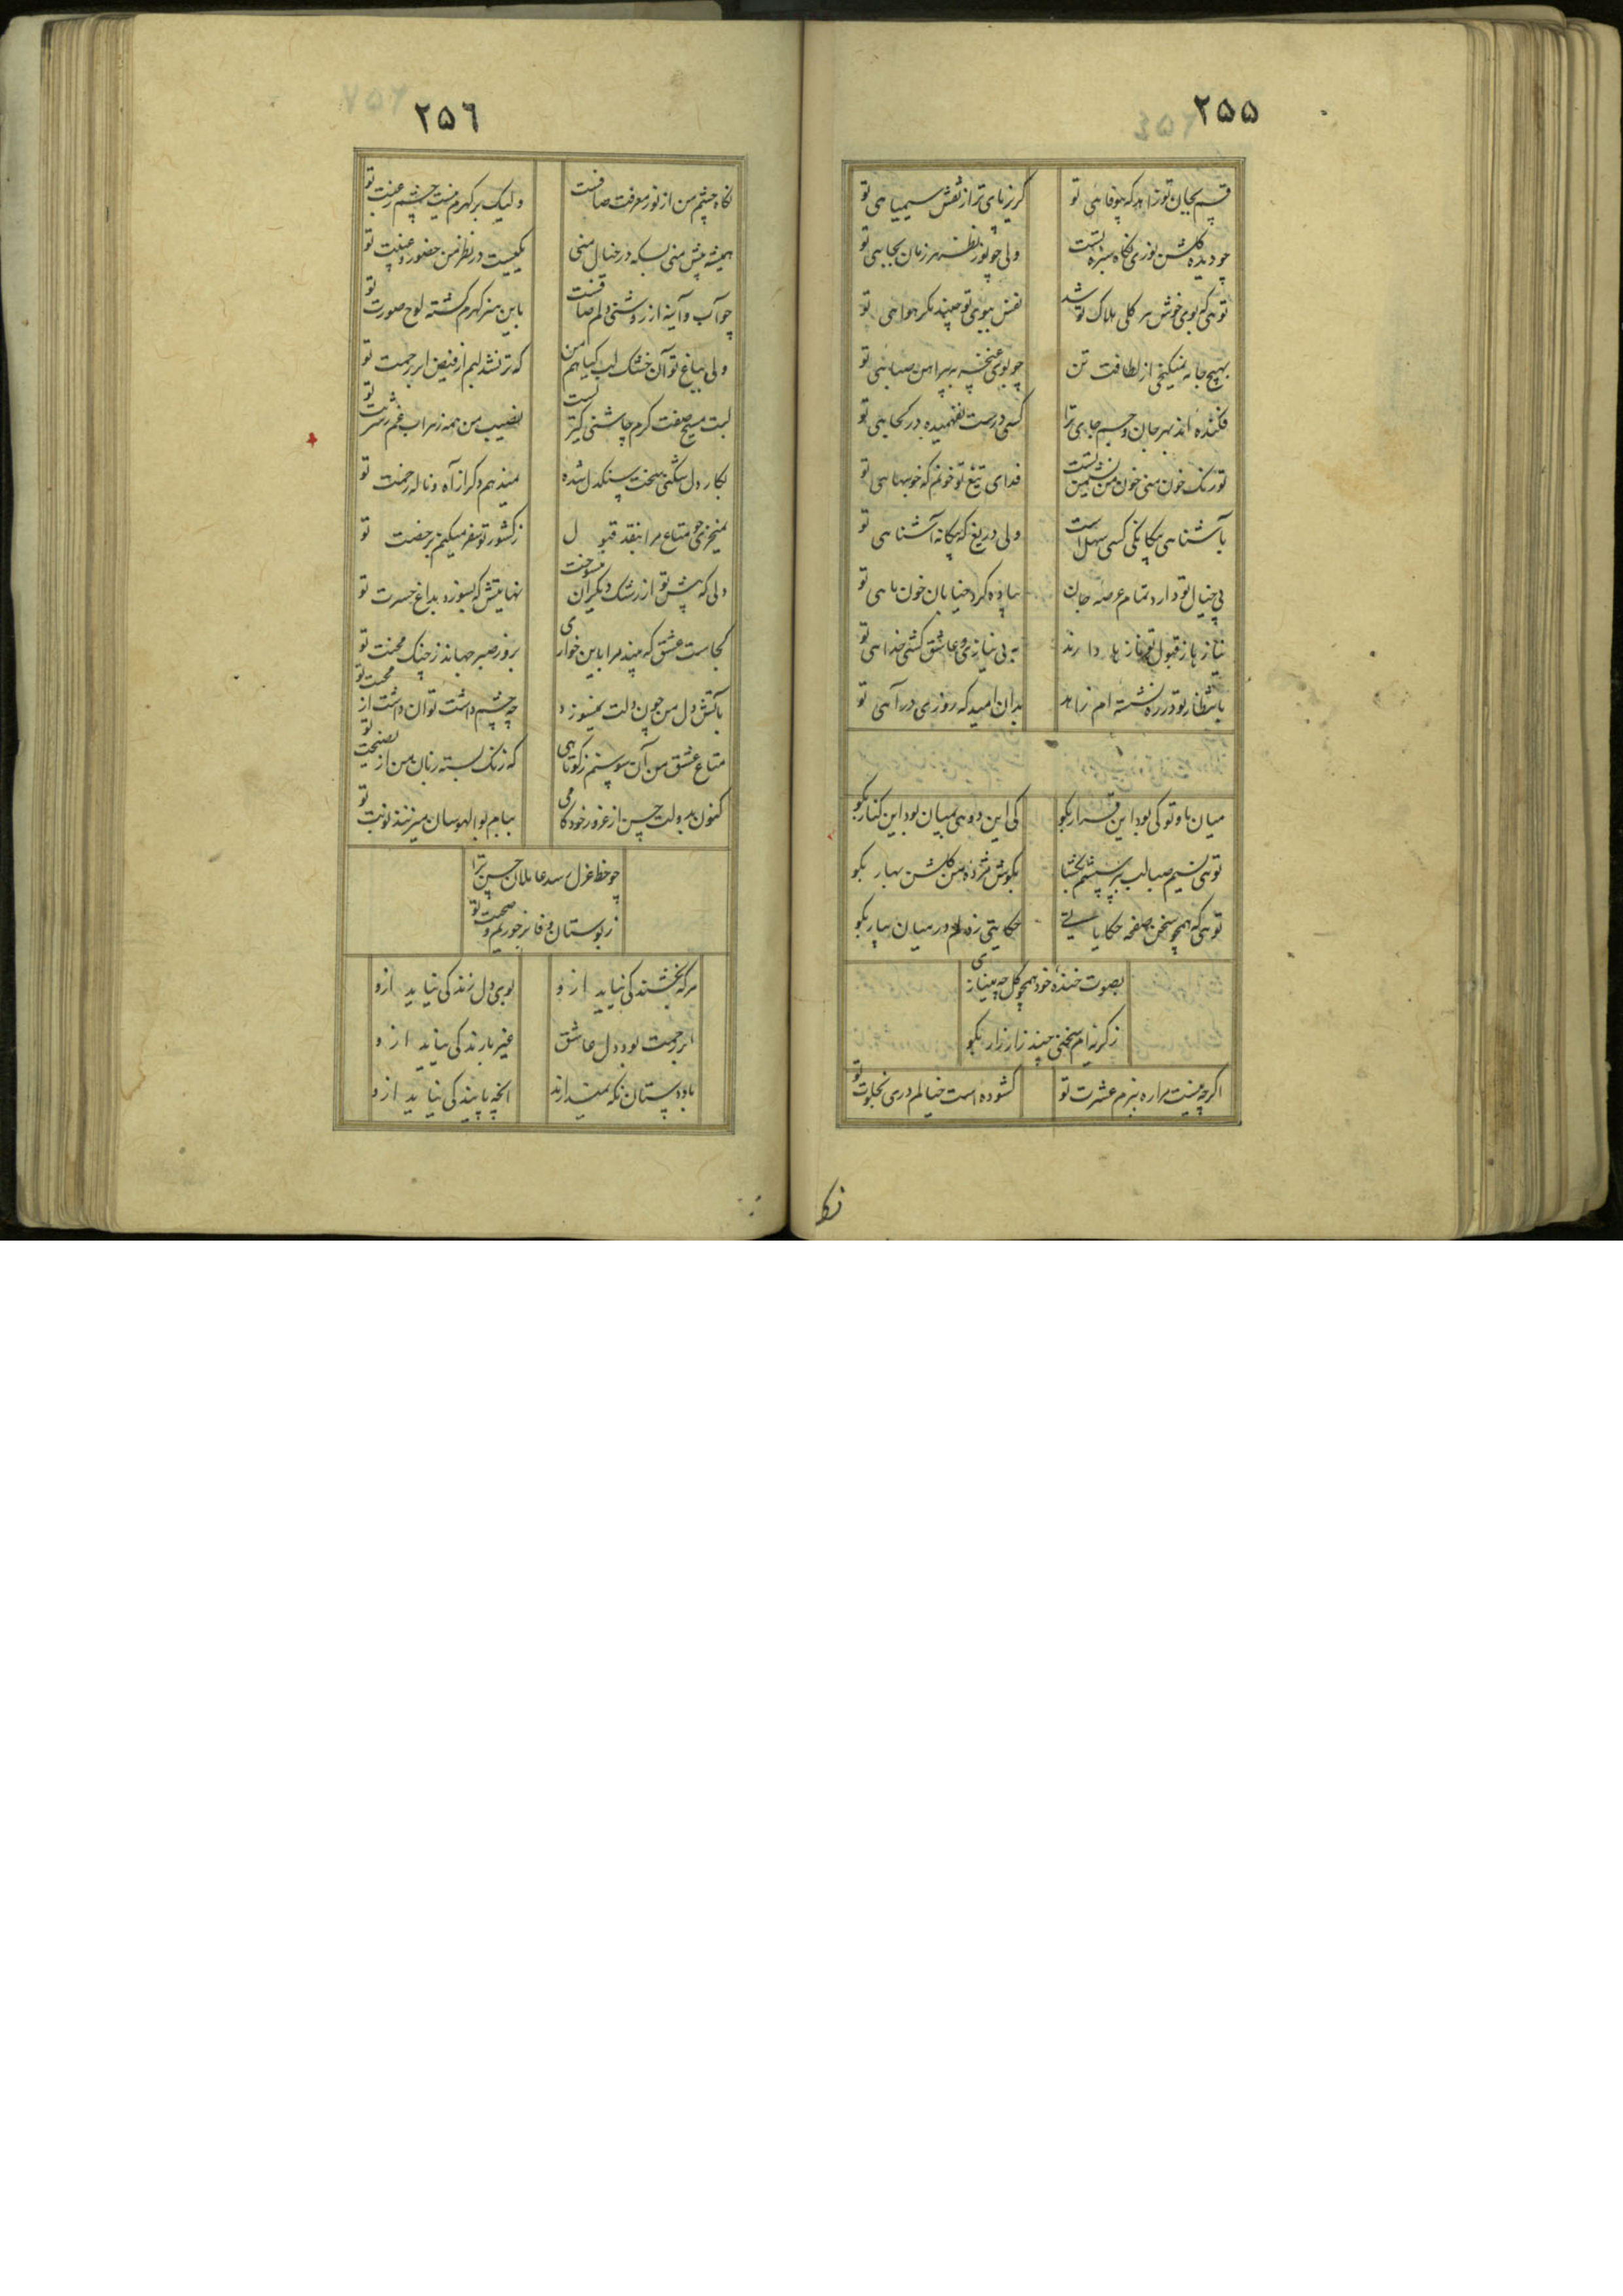 ٢٥٥
قسم بجان تو زاهد که بیوفا هی تو
گریز پای تر از نقش سیمیا هی تو
چو دیده گلشن نوری نگاه سبزه تست
ولی چو نور نظر هر زمان بجا هی تو
تو هی که بوی خوش هر گلی هلاک تو شد
نفس ببوی تو
بهیچ جا نمیگنجی از لطافت تن
چو بوی غنچه به پیراهن صبا هی تو
فکنده اند بهر جان و جسم جای ترا
کسی درست نفهمیده در کجا هی تو
تو رنک خون منی خون من
فدای تیغ تو خونم که خونبها هی تو
بآشنا هی بیکانکی کسی سهل است
ولی دریغ که بیکانه آشنا هی تو
پی خیال تو دارد تمام عرصه جان
پیاده کرد خیابان خون ما هی تو
نیاز ها ز قبول تو ناز ها دارند
به بی نیازی و عاشق کشی خدا هی تو
بانتظار تو در ره نشسته ام زاهد
بدان امید که روزی در آهی تو
میان ما و تو کی بود این قرار بکو
کی این دو هی بمیان بود این کنار بکو
تو هی نسیم صبا لب بپرسشم بکشا
بکوش مژده من کلشن بهار بکو
تو هی که همچو سخن صفحه حکایا
حکایتی ز دلم در میان بیار بکو
بصوت خنده خود همچو کل چه مینازی
ز کریه ام سخنی چند زار زار بکو
اکرچه نیست مرا ره ببزم عشرت تو
کشوده است خیالم دری بخلوت تو
نکا
٢٥٦
نکاه چشم من از نور معرفت صافست
ولیک بر کهرم نیست چشم رغبت تو
همیشه پیش منی بسکه در خیال منی
یکیست در نظر من حضور و غیبت تو
چو آب و آینه از روشنی دلم صافست
باین هنر کهرم کشته لوح صورت تو
ولی بباغ تو آن خشک لب کیاهم من
که تر نشد لبم از فیض ابر رحمت تو
لبت مسیح صفت کرم چاشنی
نصیب من همه زهراب غم ز شربت تو
بکار دل شکنی سخت سنکدل شده
نمیدهم دکر از آه و ناله زحمت تو
نمیخری چو متاع مرا بنقد قبول
ز کشور تو سفر میکنم برخصت تو
دلی که پیش تو از رشک دیکران میسوخت
نهایتش که بسوزد بداغ حسرت تو
کجاست عشق که بیند مرا باین خواری
بزور صبر جهاند ز چنک محنت تو
بآتش دل من چون دلت نمیسوزد
چه چشم داشت توان داشت از محبت تو
متاع عشق من آن
که زنک بسته زبان من از نصیحت تو
کنون بدولت حسن از غرور خودکامی
ببام بوالهوسان میزنند نوبت تو
چو خط عزل رسد عاملان حسن ترا
ز بوستان وفا بر خوریم و صحبت تو
مرکه بخشندکی نیاید ازو
بوی دل زندکی نیاید ازو
ابر رحمت بود دل عاشق
غیر بارندکی نیاید ازو
با دو دستان نکه نمیدارند
انچه پایندکی نیاید ازو